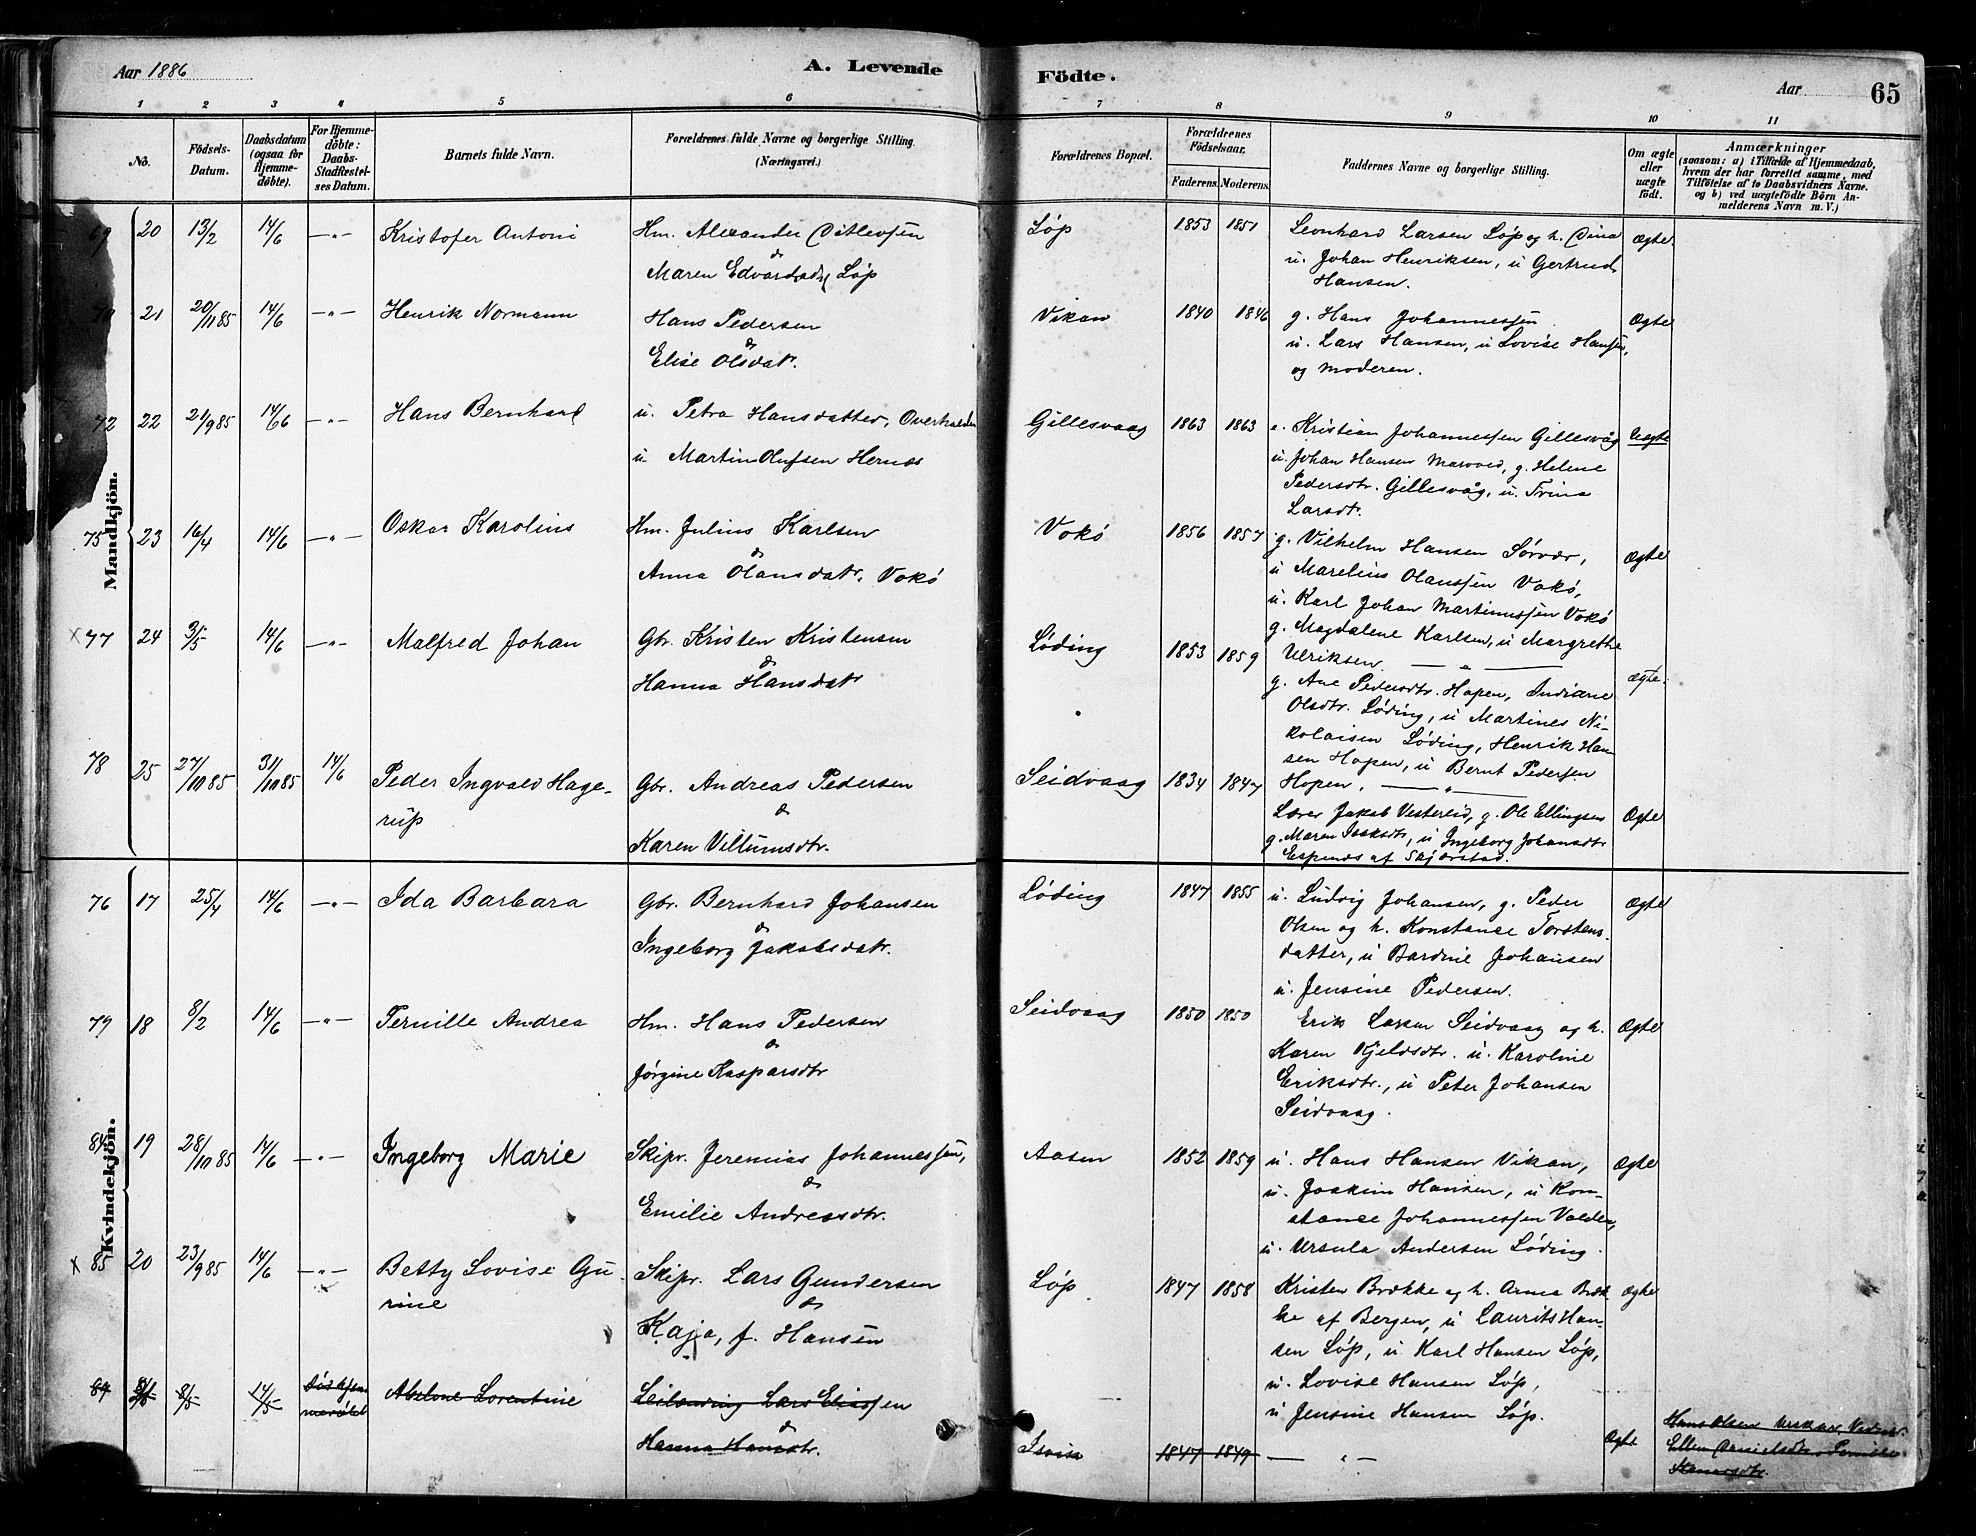 Aar 1886
A. Levende
Födte.
Aar
65
1 2 3 4 5 6 7 8 9 10 11
No.
Födsels-Datum.
Daabsdatum (ogsaa for Hjemme-döbte).
For Hjemme-döbte: Daabs-Stadfæstelses Datum.
Barnets fulde Navn.
Forældrenes fulde Navne og borgerlige Stilling. (Næringsvei.)
Forældrenes Bopæl.
Forældrenes Födselsaar.
Faderens. Moderens.
Faddernes Navne og borgerlige Stilling.
Om ægte eller uægte födt.
Anmærkninger
(saasom: a) i Tilfælde af Hjemmedaab, hvem der har forrettet samme, med Tilföielse af to Daabsvidners Navne. og b) ved uægtefödte Börn Anmelderens Navn m. V.)
Mandkjön.
20 13/2 14/6 —"— Kristofer Antoni
Hm. Alexander Ditlevsen
&
Maren Edvardsdtr Løp
Løp 1853 1851
Leonhard Larsen Løp og h. Dina
u. Johan Henriksen, u Gertrud
Hansen.
Ægte
21 20/11 85 14/6 —"— Henrik Normann
Hans Pedersen
&
Elise Olsdatr.
Vikan 1840 1846
g. Hans Johannessen
u. Lars Hansen, u Lovise Hansen,
og Moderen.
Ægte
72 22 21/9 85 14/6 —"— Hans Bernhard
u. Petra Hansdatter, Overhalden
u. Martin Olufsen Hernes
Gillesvaag 1863 1863
e. Kristian Johannessen Gillesvåg
u. Johan Hansen Marvoed, g. Helene
Pedersdtr. Gillesvåg, u. Trina
Larsdtr.
Uægte
75 23 16/4 14/6 —"— Oskar Karolius
Hm. Julius Karlsen
&
Anna Olausdatr. Vokø
Vokø 1856 1857
g. Vilhelm Hansen Sørvær,
u Marelius Olaussen Vokø,
u. Karl Johan Martinussen Vokø
g. Magdalene Karlsen, u Margrethe
Ulriksen. —"—
Ægte
x 77 24 3/5 14/6 —"— Malfred Johan
Gbr. Kristen Kristensen
&
Hanna Hansdatr
Løding 1853 1859
g. Ane Pedersdtr. Hopen, Indiane
Olsdtr. Løding, u Martines Ni-
kolaisen Løding, Henrik Han-
sen Hopen, u Bernt Pedersen
Hopen. —"—
Ægte.
78 25 27/10 85 31/10 85 14/6 Peder Ingvald Hage-
rup
Gbr. Andreas Pedersen
&
Karen Villumsdtr.
Seidvaag 1834 1847
Lærer Jakob Vestereid, g. Ole Ellingsen
g. Maren Isaksdtr, u Ingeborg Johansdtr
Espenes af Skjerstad.
Ægte
Kvindekjön.
76 17 25/4 14/6 —"— Ida Barbara
Gbr. Bernhard Johansen
&
Ingeborg Jakobsdatr.
Løding 1847 1855
u. Ludvig Johansen, g. Peder
Olsen og h. Konstance Torstens-
datter, u Bardine Johansen
u. Jensine Pedersen.
Ægte
79 18 8/2 14/6 —"— Pernille Andrea
Hm. Hans Pedersen
&
Jørgine Kasparsdtr
Seidvaag 1850 1850
Erik Larsen Seidvaag og h.
Karen Kjeldsdtr. u. Karoline
Eriksdtr., u Peter Johansen
Seidvaag.
Ægte
84 19 28/10 85 14/6 —"— Ingeborg Marie
Skipr. Jeremias Johannessen,
&
Emilie Andreasdtr.
Aasen 1852 1859
u. Hans Hansen Vikan,
u. Joakim Hansen, u Kon-
stance Johannessen Valden,
u. Ursula Andersen Løding.
Ægte
x 85 20 23/9 85 14/6 —"— Betty Lovise Gu-
rine
Skipr. Lars Gundersen
&
Kaja, f. Hansen
Løp 1847 1858
Kristen Brække og h. Anna Bræk-
ke af Bergen, u Laurits Han-
sen Løp, u Karl Hansen Løp,
u. Lovise Hansen Løp,
u Jensine Hansen Løp.
Ægte
8/5 14/5 Abelone Lorentine
Leilænding Lars Eliassen
&
Hanna Hansdtr.
1847 1849 —"—
Ægte
Hans Olsen
Ellen Danielsdtr. Pernille